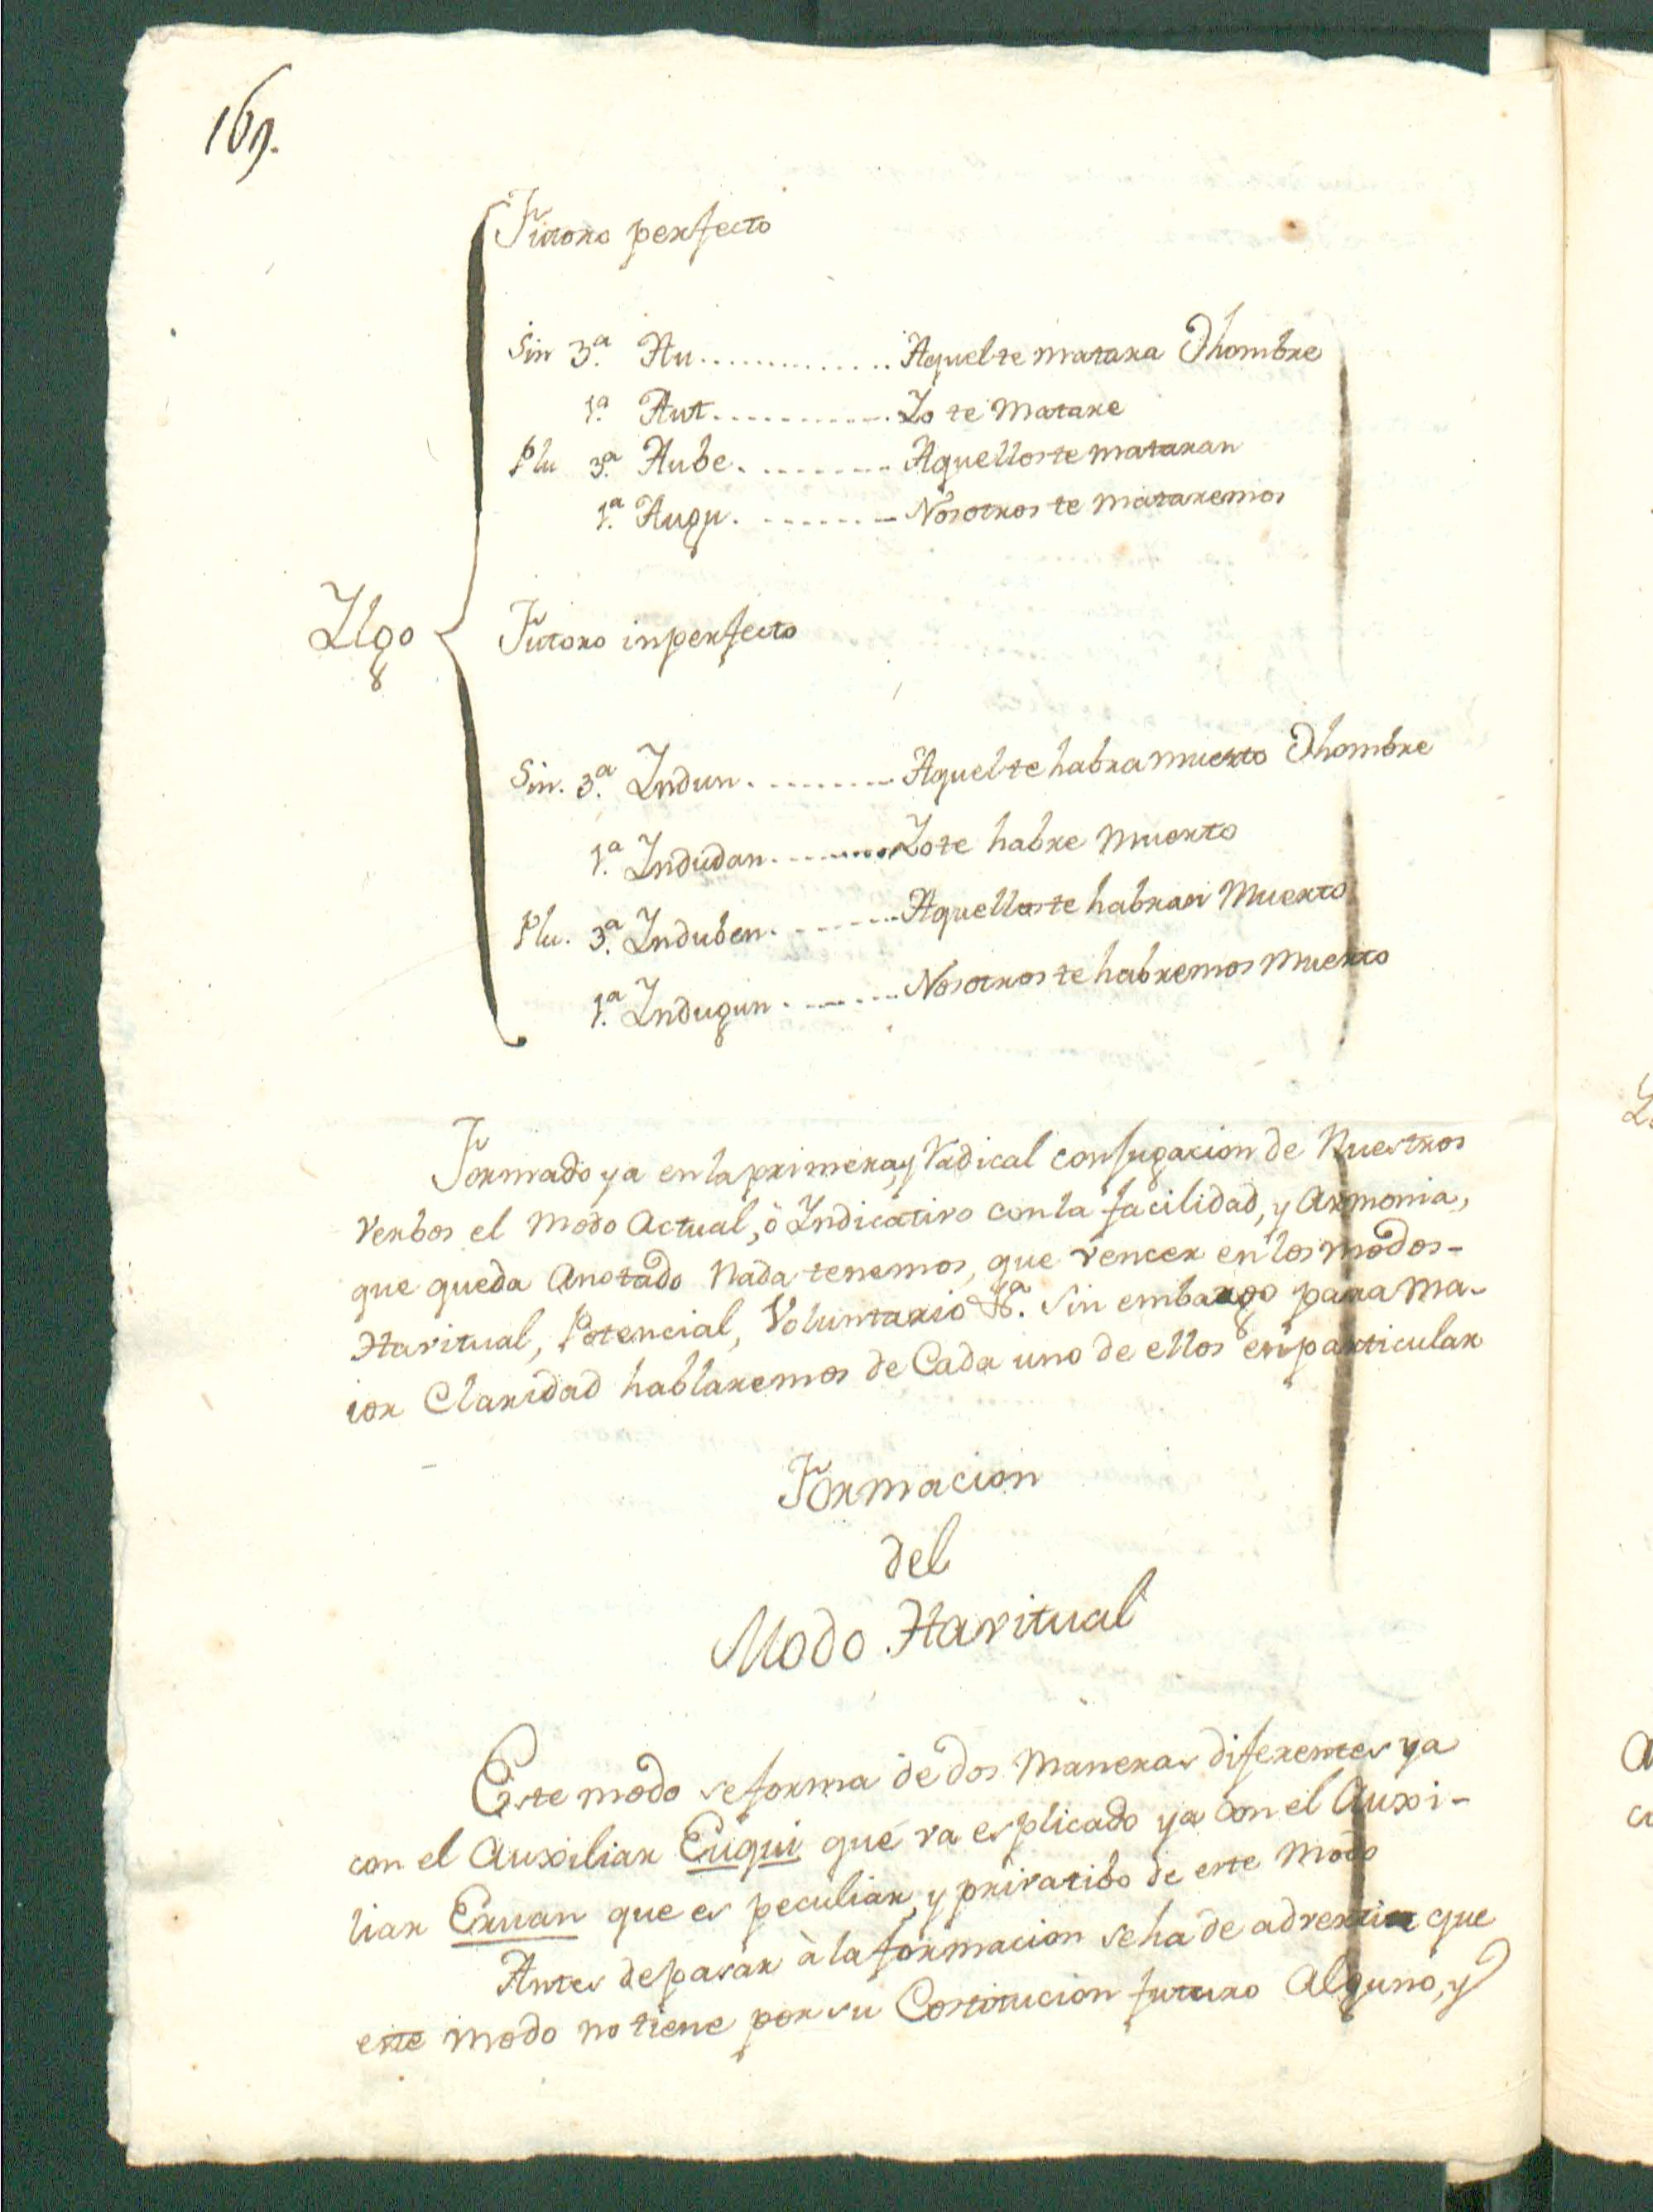 169.
Futoro perfecto
Sin 3.ª Au.............. Aquel te matara O hombre
1.ª Aut............ Yo te Matare
Plu 3.ª Aube. ........ Aquellos te mataran
1.ª Augu. ........ Nosotros te Mataremos
Ylgo
Futoro inperfecto
Sin. 3.ª Yndun. ........ Aquel te habra muerto O hombre
1.ª Yndudan. ........ Yo te habre Muerto
Plu. 3.ªYnduben. ....... Aquellos te habran Muerto
1.ª Yndugun. ....... Nosotros te habremos Muerto
Formado ya en la primera, y Radical conjugacion de Nuestros
Verbos el Modo Actual, ó Yndicativo con la facilidad, y Armonia,
que queda Anotado Nada tenemos, que vencer en los modos-
Havitual, Potencial, Voluntario &.ª Sin embargo para Ma-
ior Claridad hablaremos de Cada uno de ellos en particular
Formacion
del
Modo Havitual
Este modo se forma de dos Maneras diferentes ya
con el Auxiliar Euqui que va esplicado ya con el Auxi-
liar Eruan que es peculiar, y privatibo de este Modo
Antes de pasar à la formacion se ha de advertir que
este Modo no tiene por su Costitucion futuro Alguno, y